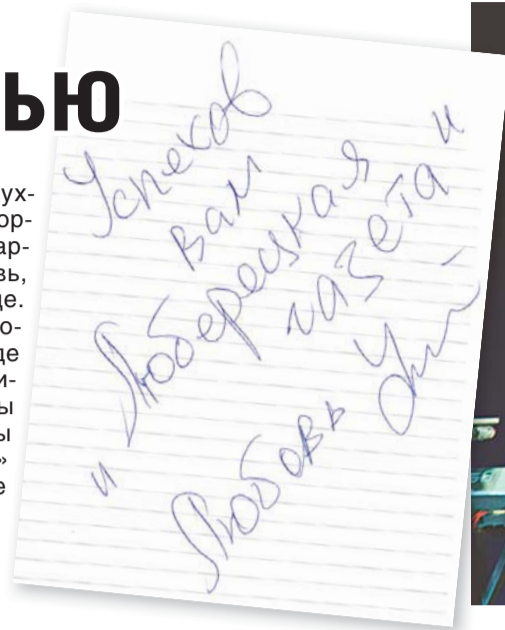 ЬЮ
ух-
ор-
ар-
вь,
це.
о-
де
и-
ы
ы
»
е
Успехов
вам
"Люберецкая
газета"
Любовь